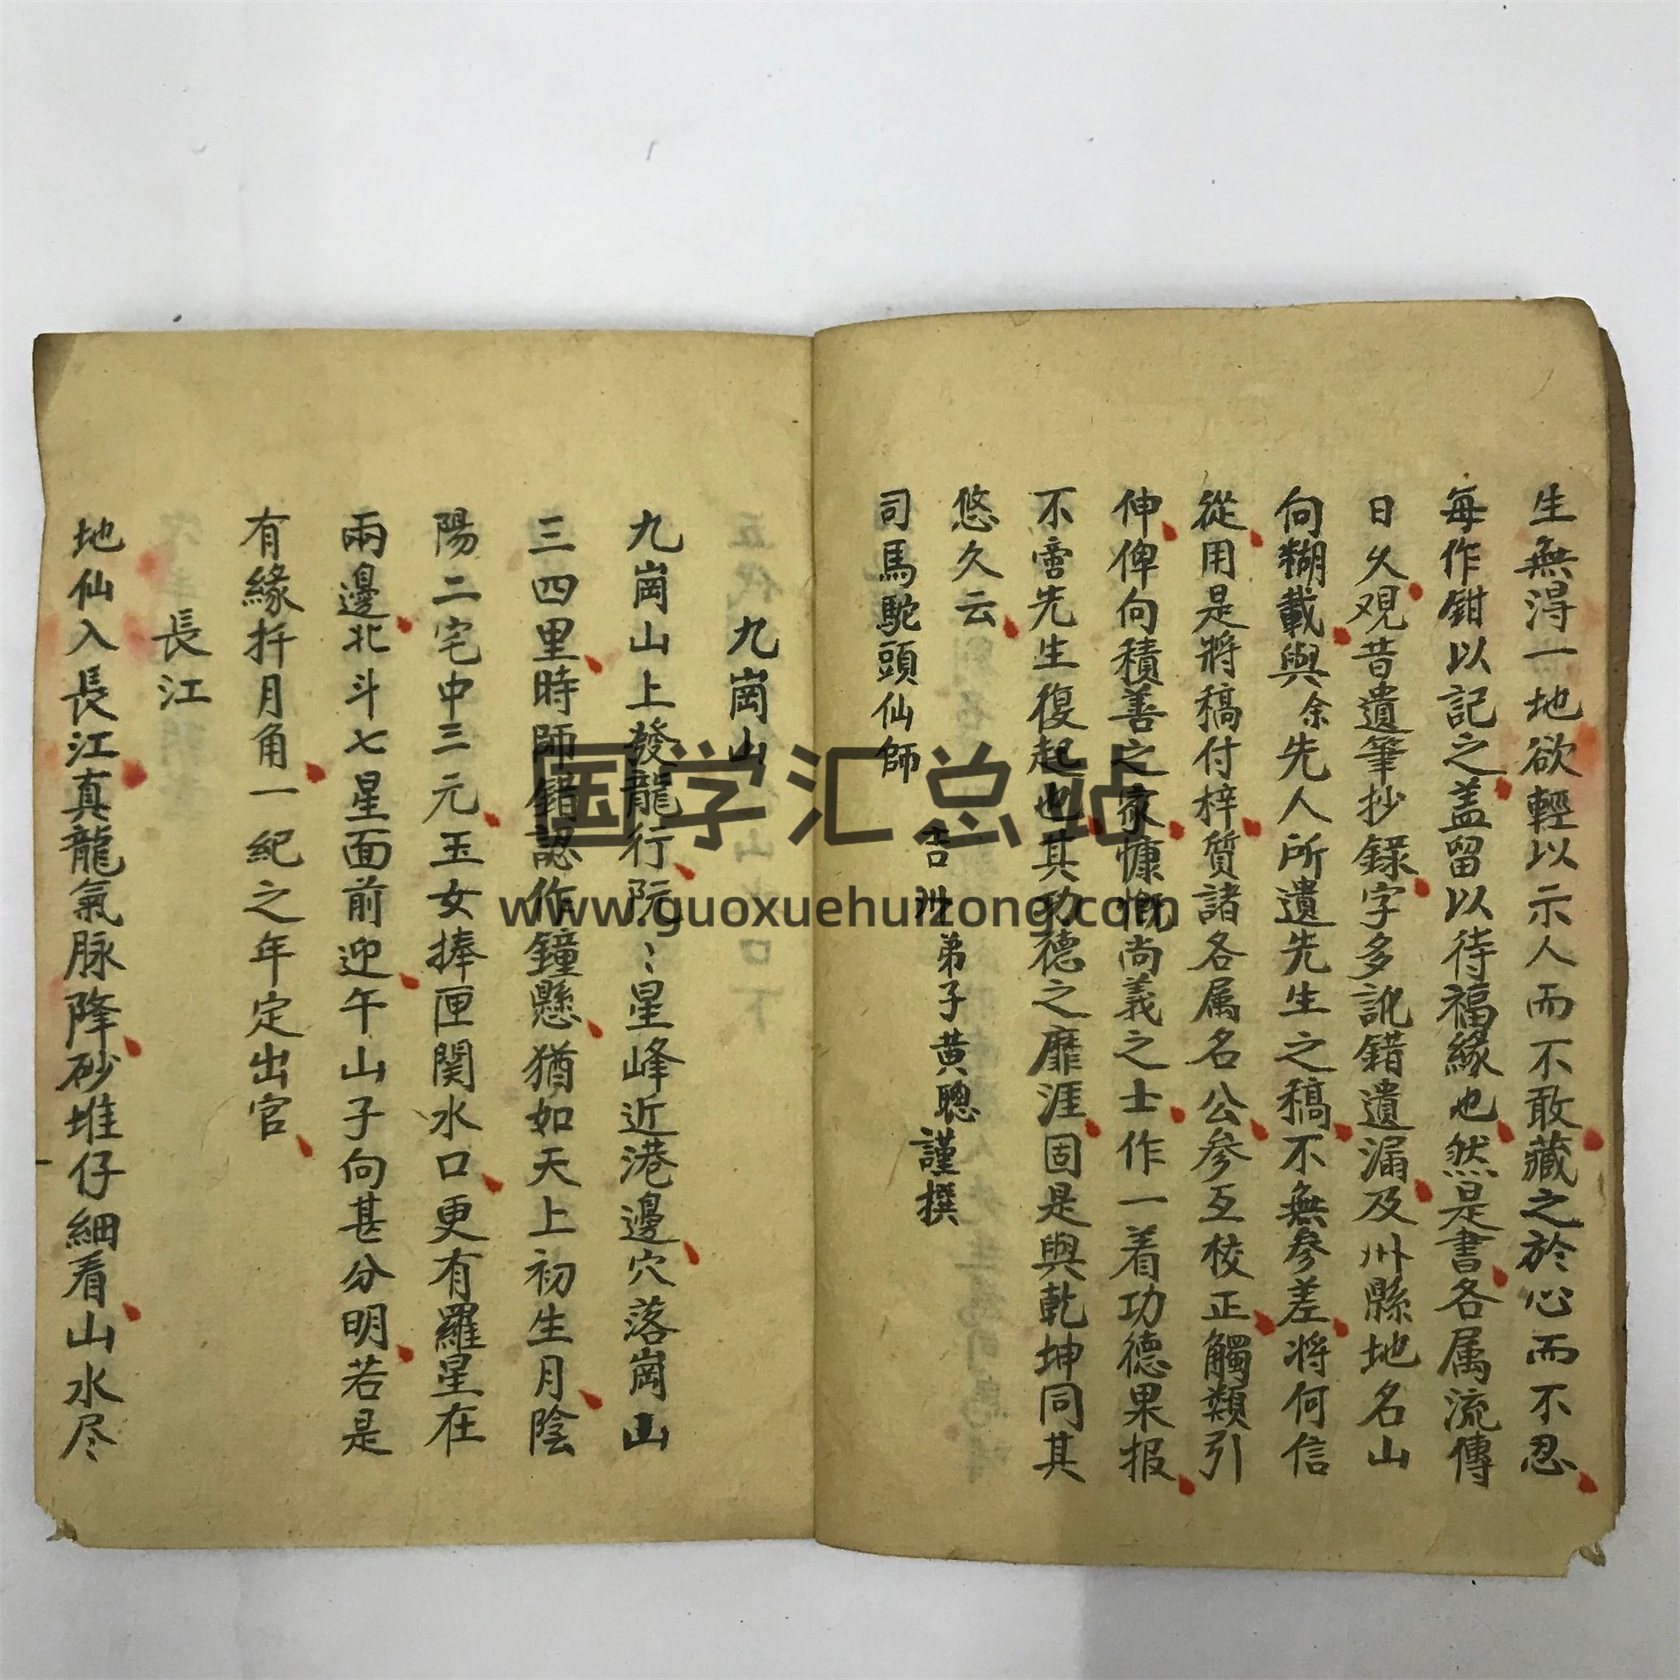 生無淂一地欲輕以示人而不敢藏之於心而不忍
每作鉗以記之盖留以待福緣也然是書各属流傳
日久观昔遺筆抄錄字多訛錯遺漏及州縣地名山
向糊載與余先人所遺先生之稿不無參差将何信
從用是將稿付梓質諸各属名公參互校正觸類引
伸俾向積善之家慷慨尚義之士作一着功德果报
不啻先生復起也其功德之靡涯固是與乾坤同其
悠久云
司馬駝頭仙師
吉州弟子黄聰謹撰
九崗山
九崗山上發龍行阮〻星峰近港邊穴落崗山
三四里時師錯認作鐘懸猶如天上初生月陰
陽二宅中三元玉女捧匣関水口更有羅星在
兩邊北斗七星面前迎午山子向甚分明若是
有緣扦月角一紀之年定出官
長江
地仙入長江真龍氣脉降砂堆仔細看山水尽
国学汇总站
www.guoxuehuizong.com